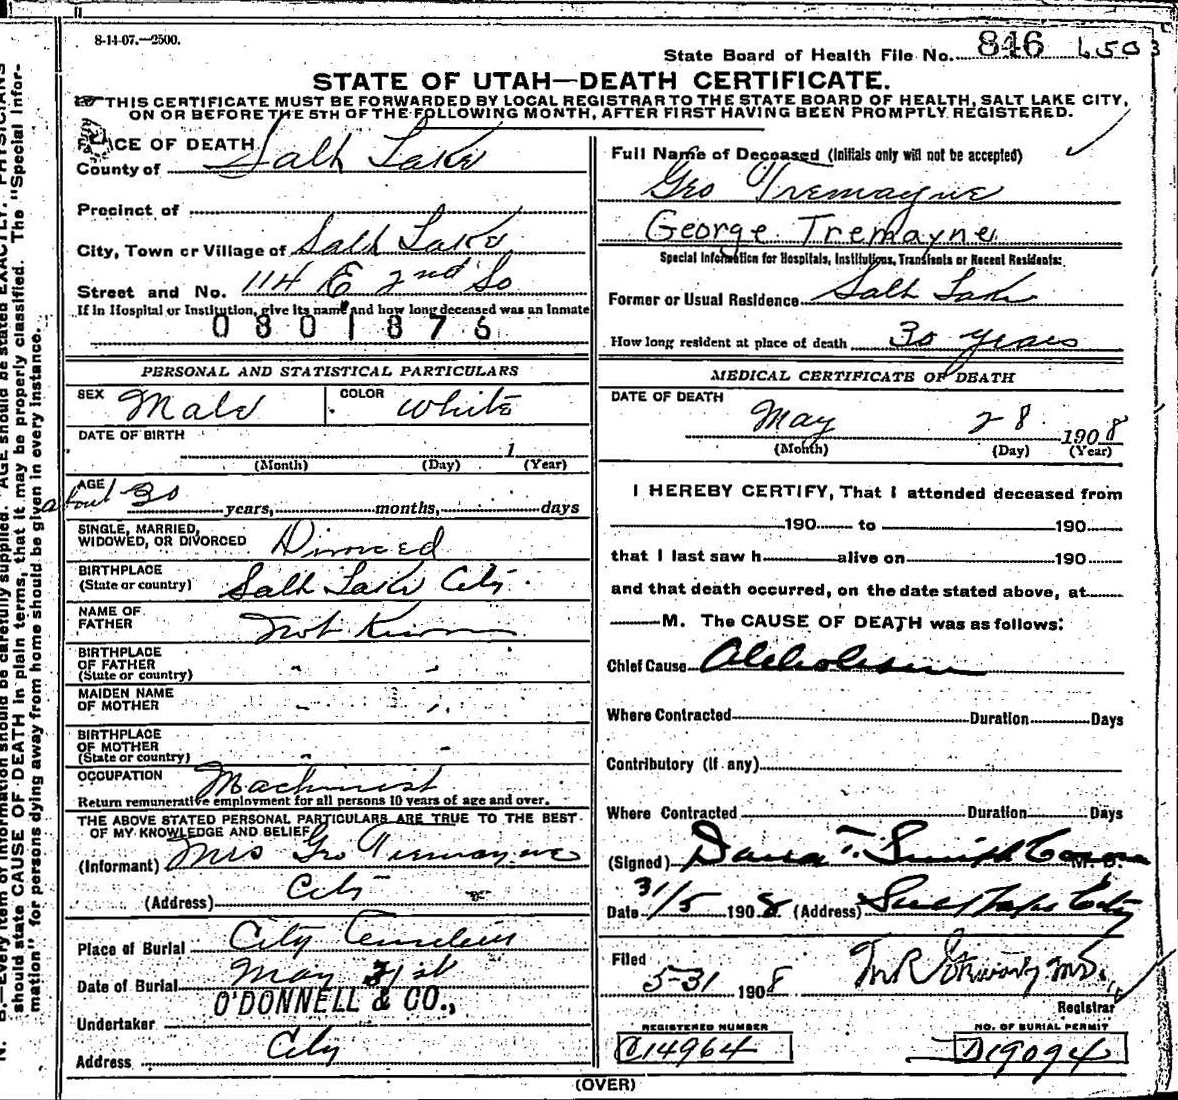 8-14-07.—2500.
State Board of Health File No. 846 6503
STATE OF UTAH—DEATH CERTIFICATE.
THIS CERTIFICATE MUST BE FORWARDED BY LOCAL REGISTRAR TO THE STATE BOARD OF HEALTH, SALT LAKE CITY,
ON OR BEFORE THE 5TH OF THE FOLLOWING MONTH, AFTER FIRST HAVING BEEN PROMPTLY REGISTERED.
PLACE OF DEATH
County of Salt Lake
Precinct of
City, Town or Village of Salt Lake
Street and No. 114 E 2nd So
If in Hospital or Institution, give its name and how long deceased was an Inmate
0801876
PERSONAL AND STATISTICAL PARTICULARS
SEX Male COLOR White
DATE OF BIRTH
1
(Month) (Day) (Year)
AGE
about 30 years, months, days
SINGLE, MARRIED,
WIDOWED, OR DIVORCED Divorced
BIRTHPLACE
(State or country) Salt Lake City.
NAME OF
FATHER Not Known
BIRTHPLACE
OF FATHER
(State or country)
MAIDEN NAME
OF MOTHER
BIRTHPLACE
OF MOTHER
(State or country)
OCCUPATION Machinist
Return remunerative employment for all persons 10 years of age and over.
THE ABOVE STATED PERSONAL PARTICULARS ARE TRUE TO THE BEST
OF MY KNOWLEDGE AND BELIEF
(Informant) Mrs Geo Tremayne
(Address) City
Place of Burial City Cemetery
Date of Burial May 31st
O'DONNELL & CO.,
Undertaker
Address City
Full Name of Deceased (Initials only will not be accepted)
Geo Tremayne
George Tremayne
Special Information for Hospitals, Institutions, Transients or Recent Residents:
Former or Usual Residence Salt Lake
How long resident at place of death 30 years
MEDICAL CERTIFICATE OF DEATH
DATE OF DEATH
May 28 1908
(Month) (Day) (Year)
I HEREBY CERTIFY, That I attended deceased from
190 to 190
that I last saw h alive on 190
and that death occurred, on the date stated above, at
M. The CAUSE OF DEATH was as follows:
Chief Cause Alcoholism
Where Contracted Duration Days
Contributory (If any)
Where Contracted Duration Days
(Signed) Dana T. Smith M. D.
Date 31/5 1908. (Address) Salt Lake City
Filed
5-31 1908
Registrar
REGISTERED NUMBER
C14964
NO. OF BURIAL PERMIT
D19094
(OVER)
N. B.—Every item of information should be carefully supplied. AGE should be stated EXACTLY. PHYSICIANS
should state CAUSE OF DEATH in plain terms, that it may be properly classified. The "Special Infor-
mation" for persons dying away from home should be given in every instance.